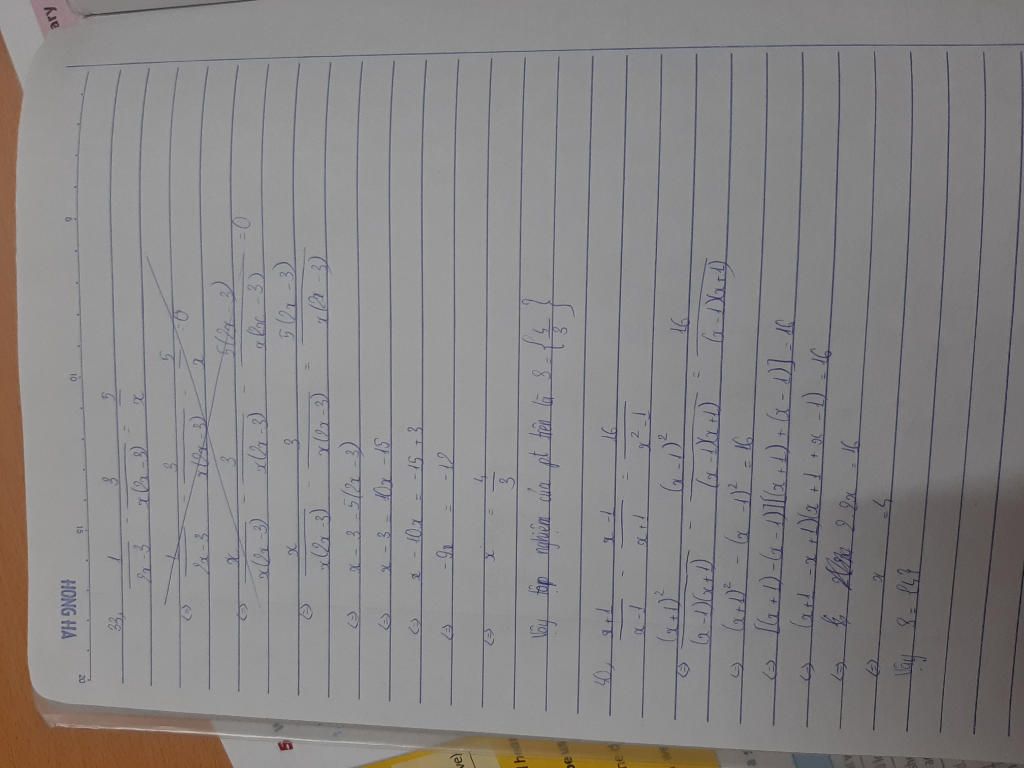 HONG HA
20 15 10 5
33, 1/(2x-3) - 3/(x(2x-3)) = 5/x
⇔ 1/(2x-3) - 3/(x(2x-3)) - 5/x = 0
⇔ x/(x(2x-3)) - 3/(x(2x-3)) - 5(2x-3)/(x(2x-3)) = 0
⇔ x/(x(2x-3)) - 3/(x(2x-3)) = 5(2x-3)/(x(2x-3))
⇔ x - 3 = 5(2x-3)
⇔ x - 3 = 10x - 15
⇔ x - 10x = -15 + 3
⇔ -9x = -12
⇔ x = 4/3
Vậy tập nghiệm của pt trên là S = {4/3}
40, (x+1)/(x-1) - (x-1)/(x+1) = 16/(x²-1)
⇔ (x+1)²/((x-1)(x+1)) - (x-1)²/((x-1)(x+1)) = 16/((x-1)(x+1))
⇔ (x+1)² - (x-1)² = 16
⇔ [(x+1)-(x-1)][(x+1)+(x-1)] = 16
⇔ (x+1-x+1)(x+1+x-1) = 16
⇔ 2 2x = 16
⇔ x = 4
Vậy S = {4}